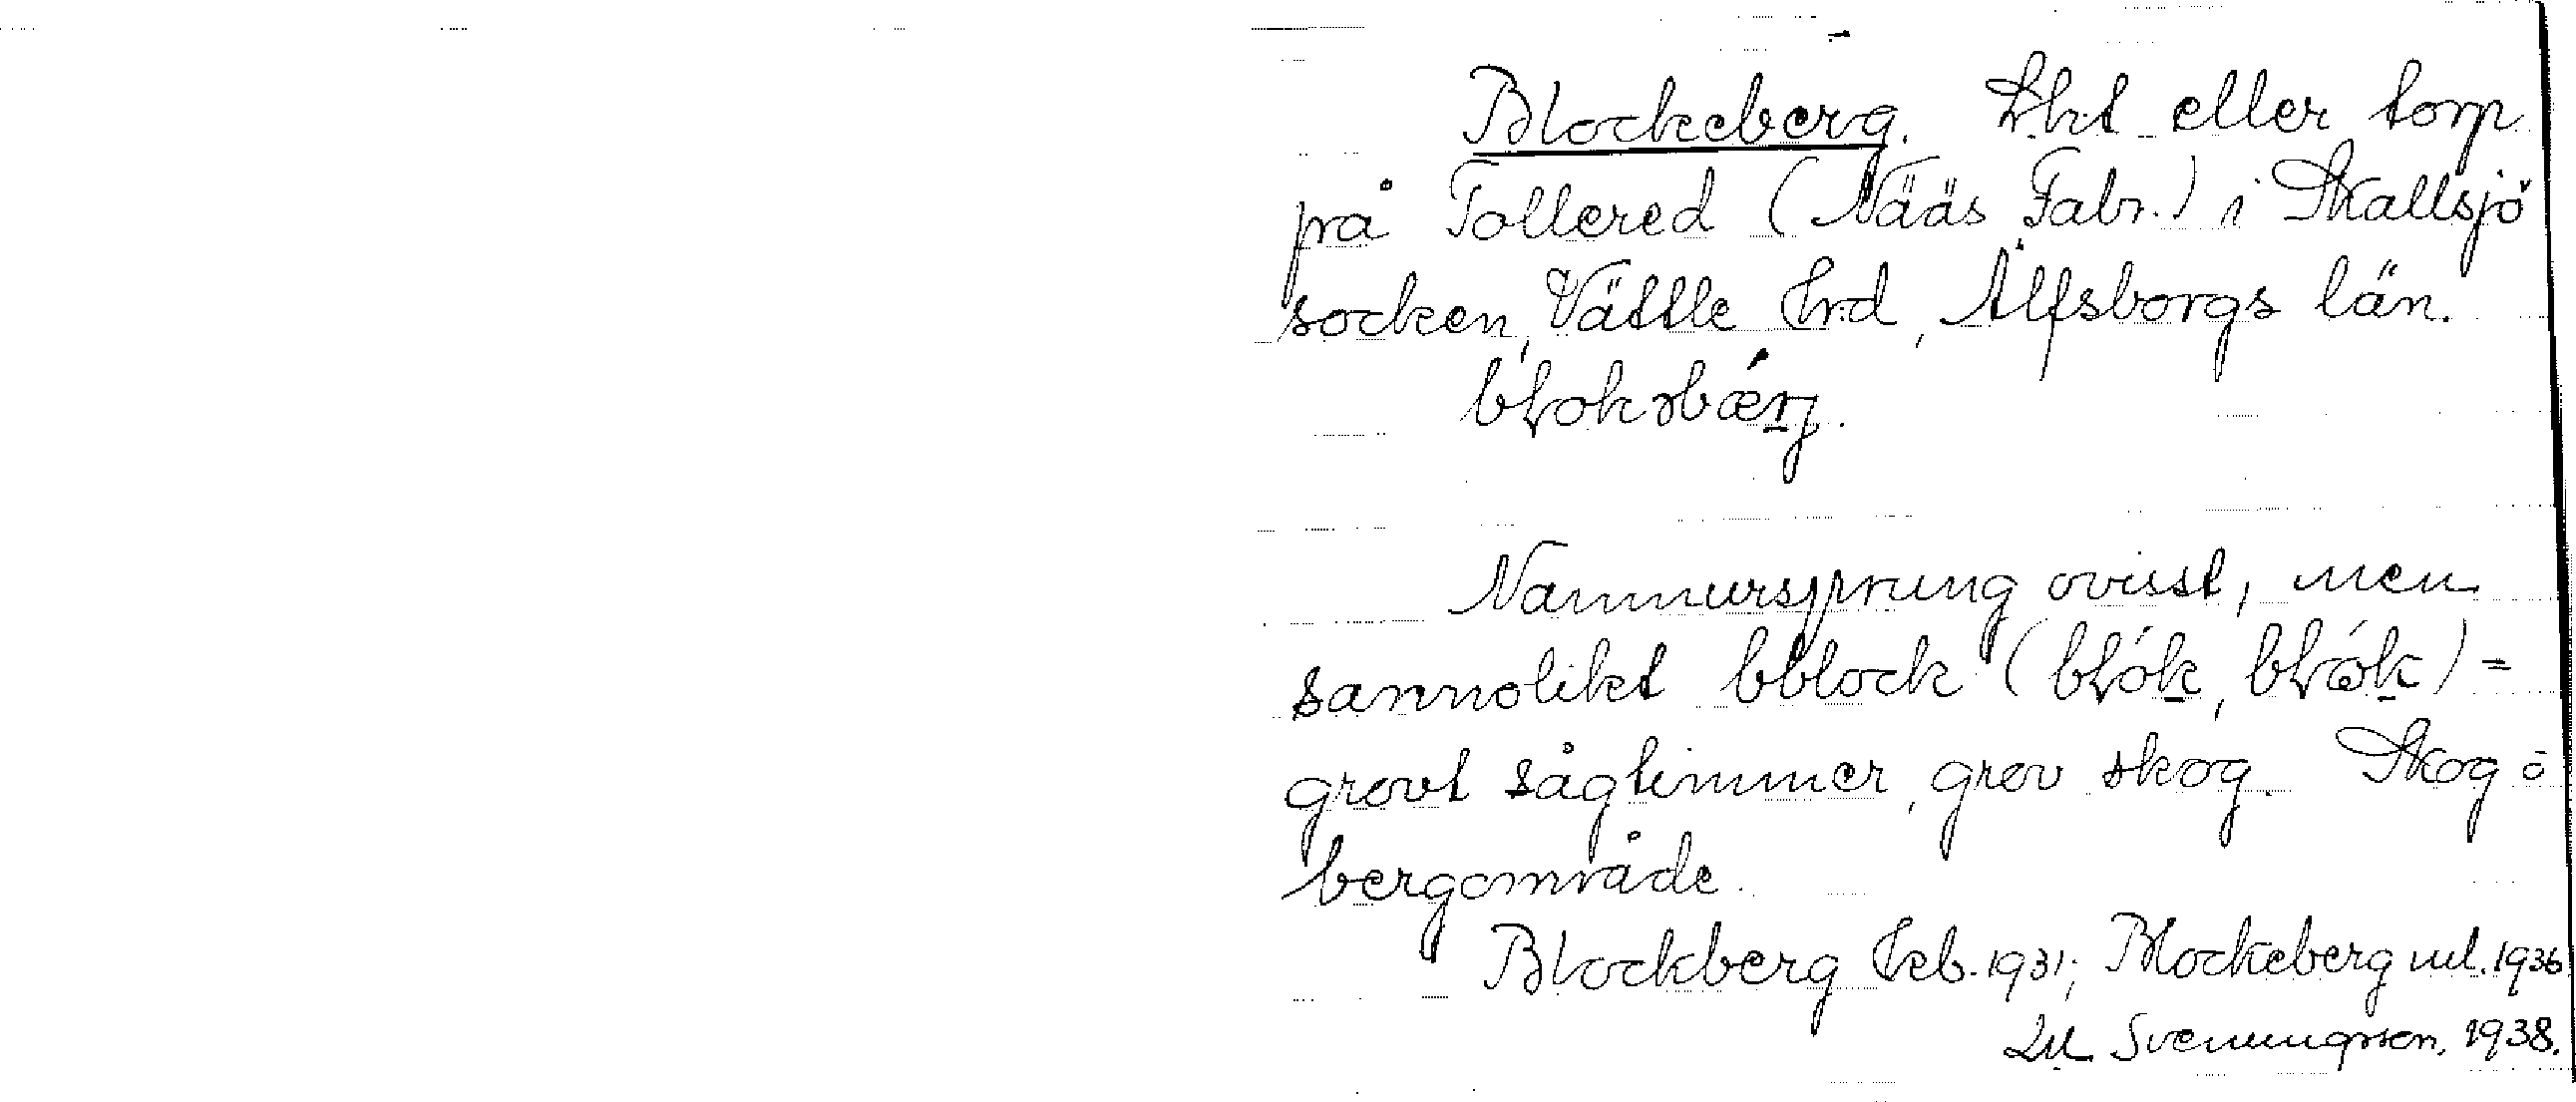 Blockeberg. Lht eller torp
på Tollered (Nääs Fabr.) i Skallsjö
socken, Vättle hrd, Älfsborgs län.
Namnursprung ovisst, men
sannolikt bblock
grovt sågtimmer, grov skog. Skog o
bergområde.
Blockberg Jeb. 1931; Blockeberg ml. 1936
Svenningsson. 1938.